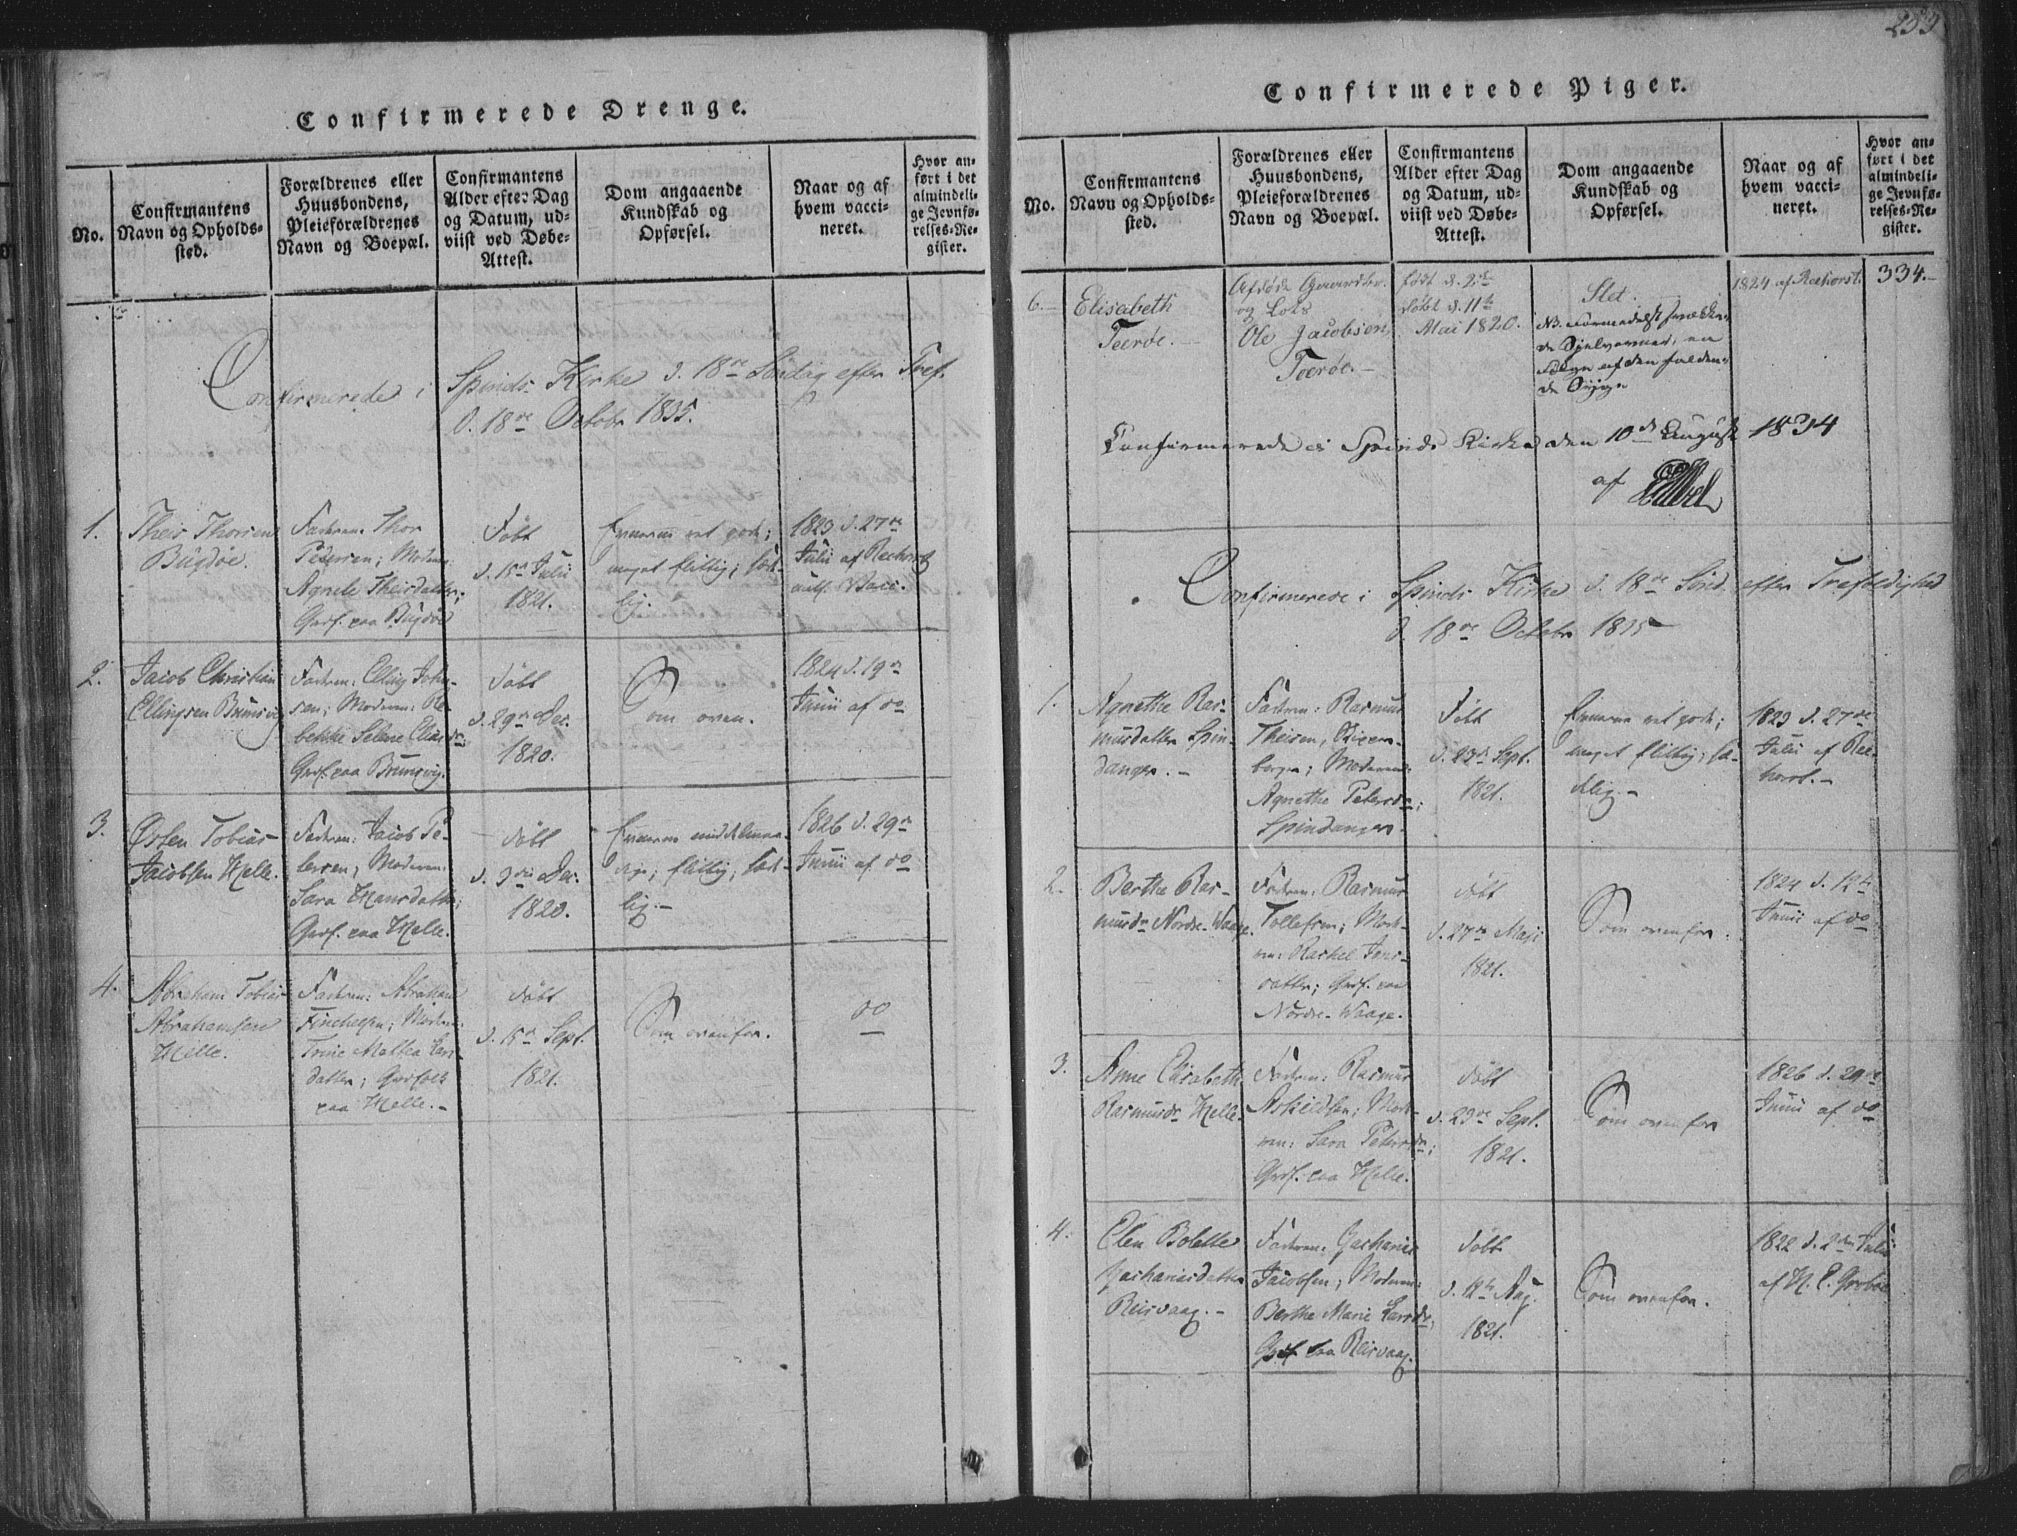 Confirmerede Drenge.
No.
Confirmantens
Navn og Opholds-
sted.
Forældrenes eller
Huusbondens,
Pleieforældrenes
Navn og Boepæl.
Confirmantens
Alder efter Dag
og Datum, ud-
viist ved Døbe-
Attest.
Dom angaaende
Kundskab og
Opførsel.
Naar og af
hvem vacci-
neret.
Hvor an-
ført i det
almindeli-
ge Jevnfø-
relses-Re-
gister.
Confirmerede i Spinds Kirke d. 18de Søndag efter Tref.
d. 18de Octobr 1835.
1.
Theis Thorsen
Bugdøe.
Faderen: Thor
Pedersen; Moderen:
Agnete Theisdatter;
Grdf. paa Bugdøe
Døbt
d. 15de Julii
1821.
Evnerne ret gode;
meget flittig; sæd-
lig.
1823 d. 27de
Julii af Rechorst
Vacc.
2.
Jacob Christian
Ellingsen Brunsvig
Faderen: Elling John-
sen; Moderen: Re-
bekke Selene Eliasdr
Grdf. paa Brunsvig.
Døbt
d. 29de Dec.
1820.
Som oven.
1824 d. 19de
Junii af do
3.
Østen Tobias
Jacobsen Helle.
Faderen: Jacob Pe-
tersen; Moderen:
Sara Hansdatter;
Grdf. paa Helle.
Døbt
d. 3die Dec.
1820.
Evnerne middelmaa-
dige; flittig; sæd-
lig.-
1826 d. 29de
Junii af do
4.
Abraham Tobias
Abrahamsen
Helle.
Faderen: Abraham
Moderen:
Trine Maltea Lars-
datter; Grdfolk
paa Helle.-
Døbt
d. 15de Sept.
1821.
Som ovenfor.
do
253
Confirmerede Piger.
No.
Confirmantens
Navn og Opholds-
sted.
Forældrenes eller
Huusbondens,
Pleieforældrenes
Navn og Boepæl.
Confirmantens
Alder efter Dag
og Datum, ud-
viist ved Døbe-
Attest.
Dom angaaende
Kundskab og
Opførsel.
Naar og af
hvem vacci-
neret.
Hvor an-
ført i det
almindeli-
ge Jevnfø-
relses-Re-
gister.
6.
Elisabeth
Teerøe.-
Afdøde Gaardbr.
og Lods
Ole Jacobsen,
Teerøe.-
født d. 2de
døbt d. 11te
Mai 1820.
Slet.
NB. Formedelst svække-
de Sjelsevner, en
Følge af den falden-
de Syge
1824 af Rechorst.
334.-
Confirmerede i Spinds Kirke den 10de August 1834
af
Confirmerede i Spinds Kirke d. 18de Sønd. efter Trefoldighed
d. 18de Octobr 1835
1.
Agnethe Ras-
musdatter Spin-
danger.-
Faderen: Rasmus
Theisen,
Moderen:
Agnethe Petersdr;
Spindanger.
Døbt
d. 23de Sept.
1821.
Evnerne ret gode;
meget flittig; sæ-
delig.-
1823 d. 27de
Julii af Rec-
horst.-
2.
Berthe Ras-
musdr Nordre-Waage.
Faderen: Rasmus
Tollefsen; Mode-
ren: Rachel Jens-
datter; Grdf. paa
Nordre-Waage.
Døbt
d. 27de Maji
1821.
Som ovenfor.
1824 d. 12te
Junii af do
3.
Anne Elisabeth
Rasmusdr Helle.
Faderen: Rasmus
Askildsen; Mode-
ren: Sara Petersdr;
Grdf. paa Helle.
Døbt
d. 23de Sept.
1821.
Som ovenfor
1826 d. 29de
Junii af do
4.
Elen Bolette
Zachariasdatter
Reisvaag.-
Faderen: Zacharias
Jacobsen; Moderen:
Berthe Marie Larsdr;
Grdf. paa Reisvaag.
Døbt
d. 12te Aug.
1821.
Som ovenfor.
1822 d. 2den Julii
af H. E. Grobøe